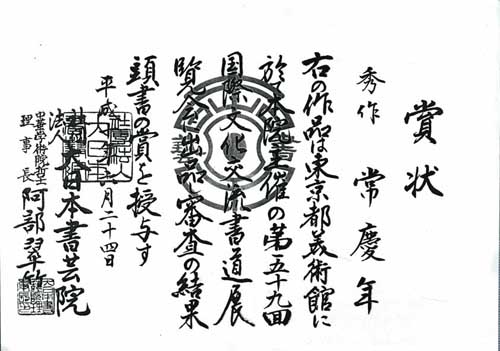 賞状
秀作 常慶年
右の作品は東京都美術館に
於て本院主催の第五十九回
国際文化交流書道展
覧会に出品し審査の結果
頭書の賞を授与す
平成 年 月二十四日
大日本書芸院
理事長 阿部翠竹